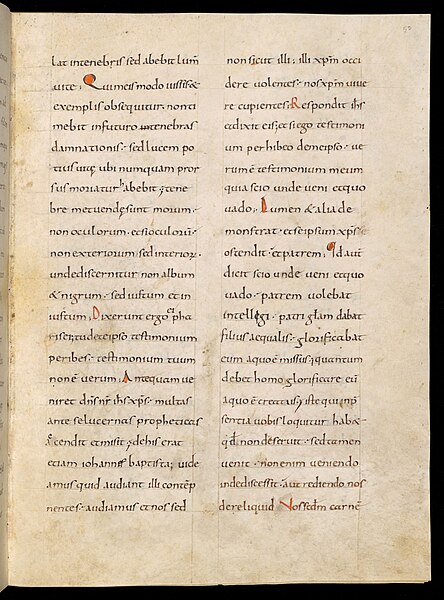 lat intenebris sed abebit lum̄
uite; Quimeis modo iussis &
exemplis obsequitur. non ti
mebit infuturo tenebras
damnationis. sed lucem po
tius uitę ubi numquam pror
sus moriatur habebit; tene
bre metuendę sunt morum.
non oculorum. etsi oculorū.
non exteriorum sed interior.
unde discernitur non album
& nigrum. sed iustum et in
iustum; Dixerunt ergo ei pha
risei; tu deteipso testimonium
peribes. testimonium tuum
non ē uerum; Antequam ue
niret dn̄s nr̄ ih̄s xp̄s. multas
ante se lucernas propheticas
accendit et misit; dehis erat
etiam iohannes baptista; uide
amus quid audiant illi contēp
nentes. audiamus et nos sed
non sicut illi; illi xp̄m occi
dere uolentes. nos xp̄m uiue
re cupientes; Respondit ih̄s
et dixit eis; et si ego testimoni
um perhibeo demeipso. ue
rum ē testimonium meum
quia scio unde ueni et quo
uado; Lumen & alia de
monstrat. et seipsum xp̄s
ostendit et patrem; Quid aut̄
dicit scio unde ueni et quo
uado. patrem uolebat
intellegi. patri glām dabat
filius aequalis. glorificabat
eum aquo ē missus; quantum
debet homo glorificare eū
aquo ē creatus; iste qui inpre
sentia uobis loquitur. hab&
qd̄ non deseruit. sed tamen
uenit. non enim ueniendo
inde discessit. aut rediendo nos
dereliquid Nos sedm̄ carnē